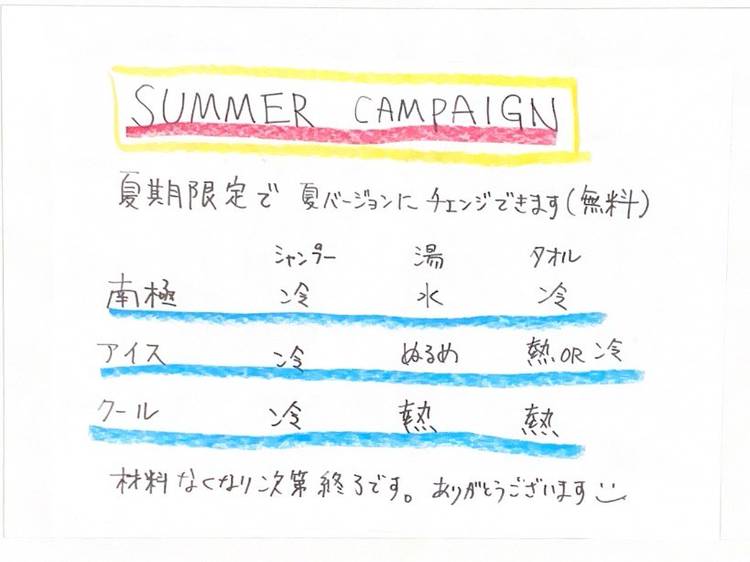 SUMMER CAMPAIGN
夏期限定で 夏バージョンにチェンジできます(無料)
シャンプー 湯 タオル
南極 冷 水 冷
アイス 冷 ぬるめ 熱OR冷
クール 冷 熱 熱
材料なくなり次第終了です。ありがとうございます